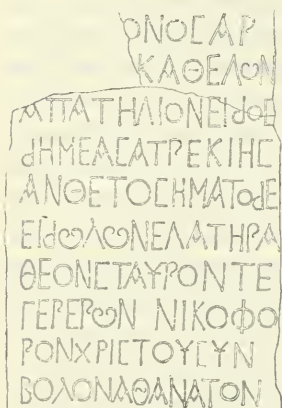 ΟΝΟΣΑΡ
ΚΑΘΕΛΩΝ
ΑΠΑΤΗΛΙΟΝΕΙΔΟΣ
ΔΗΜΕΑΣΑΤΡΕΚΙΗΣ
ΑΝΘΕΤΟΣΗΜΑΤΟΔΕ
ΕΙΔΩΛΩΝΕΛΑΤΗΡΑ
ΘΕΟΝΣΤΑΥΡΟΝΤΕ
ΓΕΡΕΡΩΝ ΝΙΚΟΦΟ
ΡΟΝΧΡΙΣΤΟΥΣΥΝ
ΒΟΛΟΝΑΘΑΝΑΤΟΝ